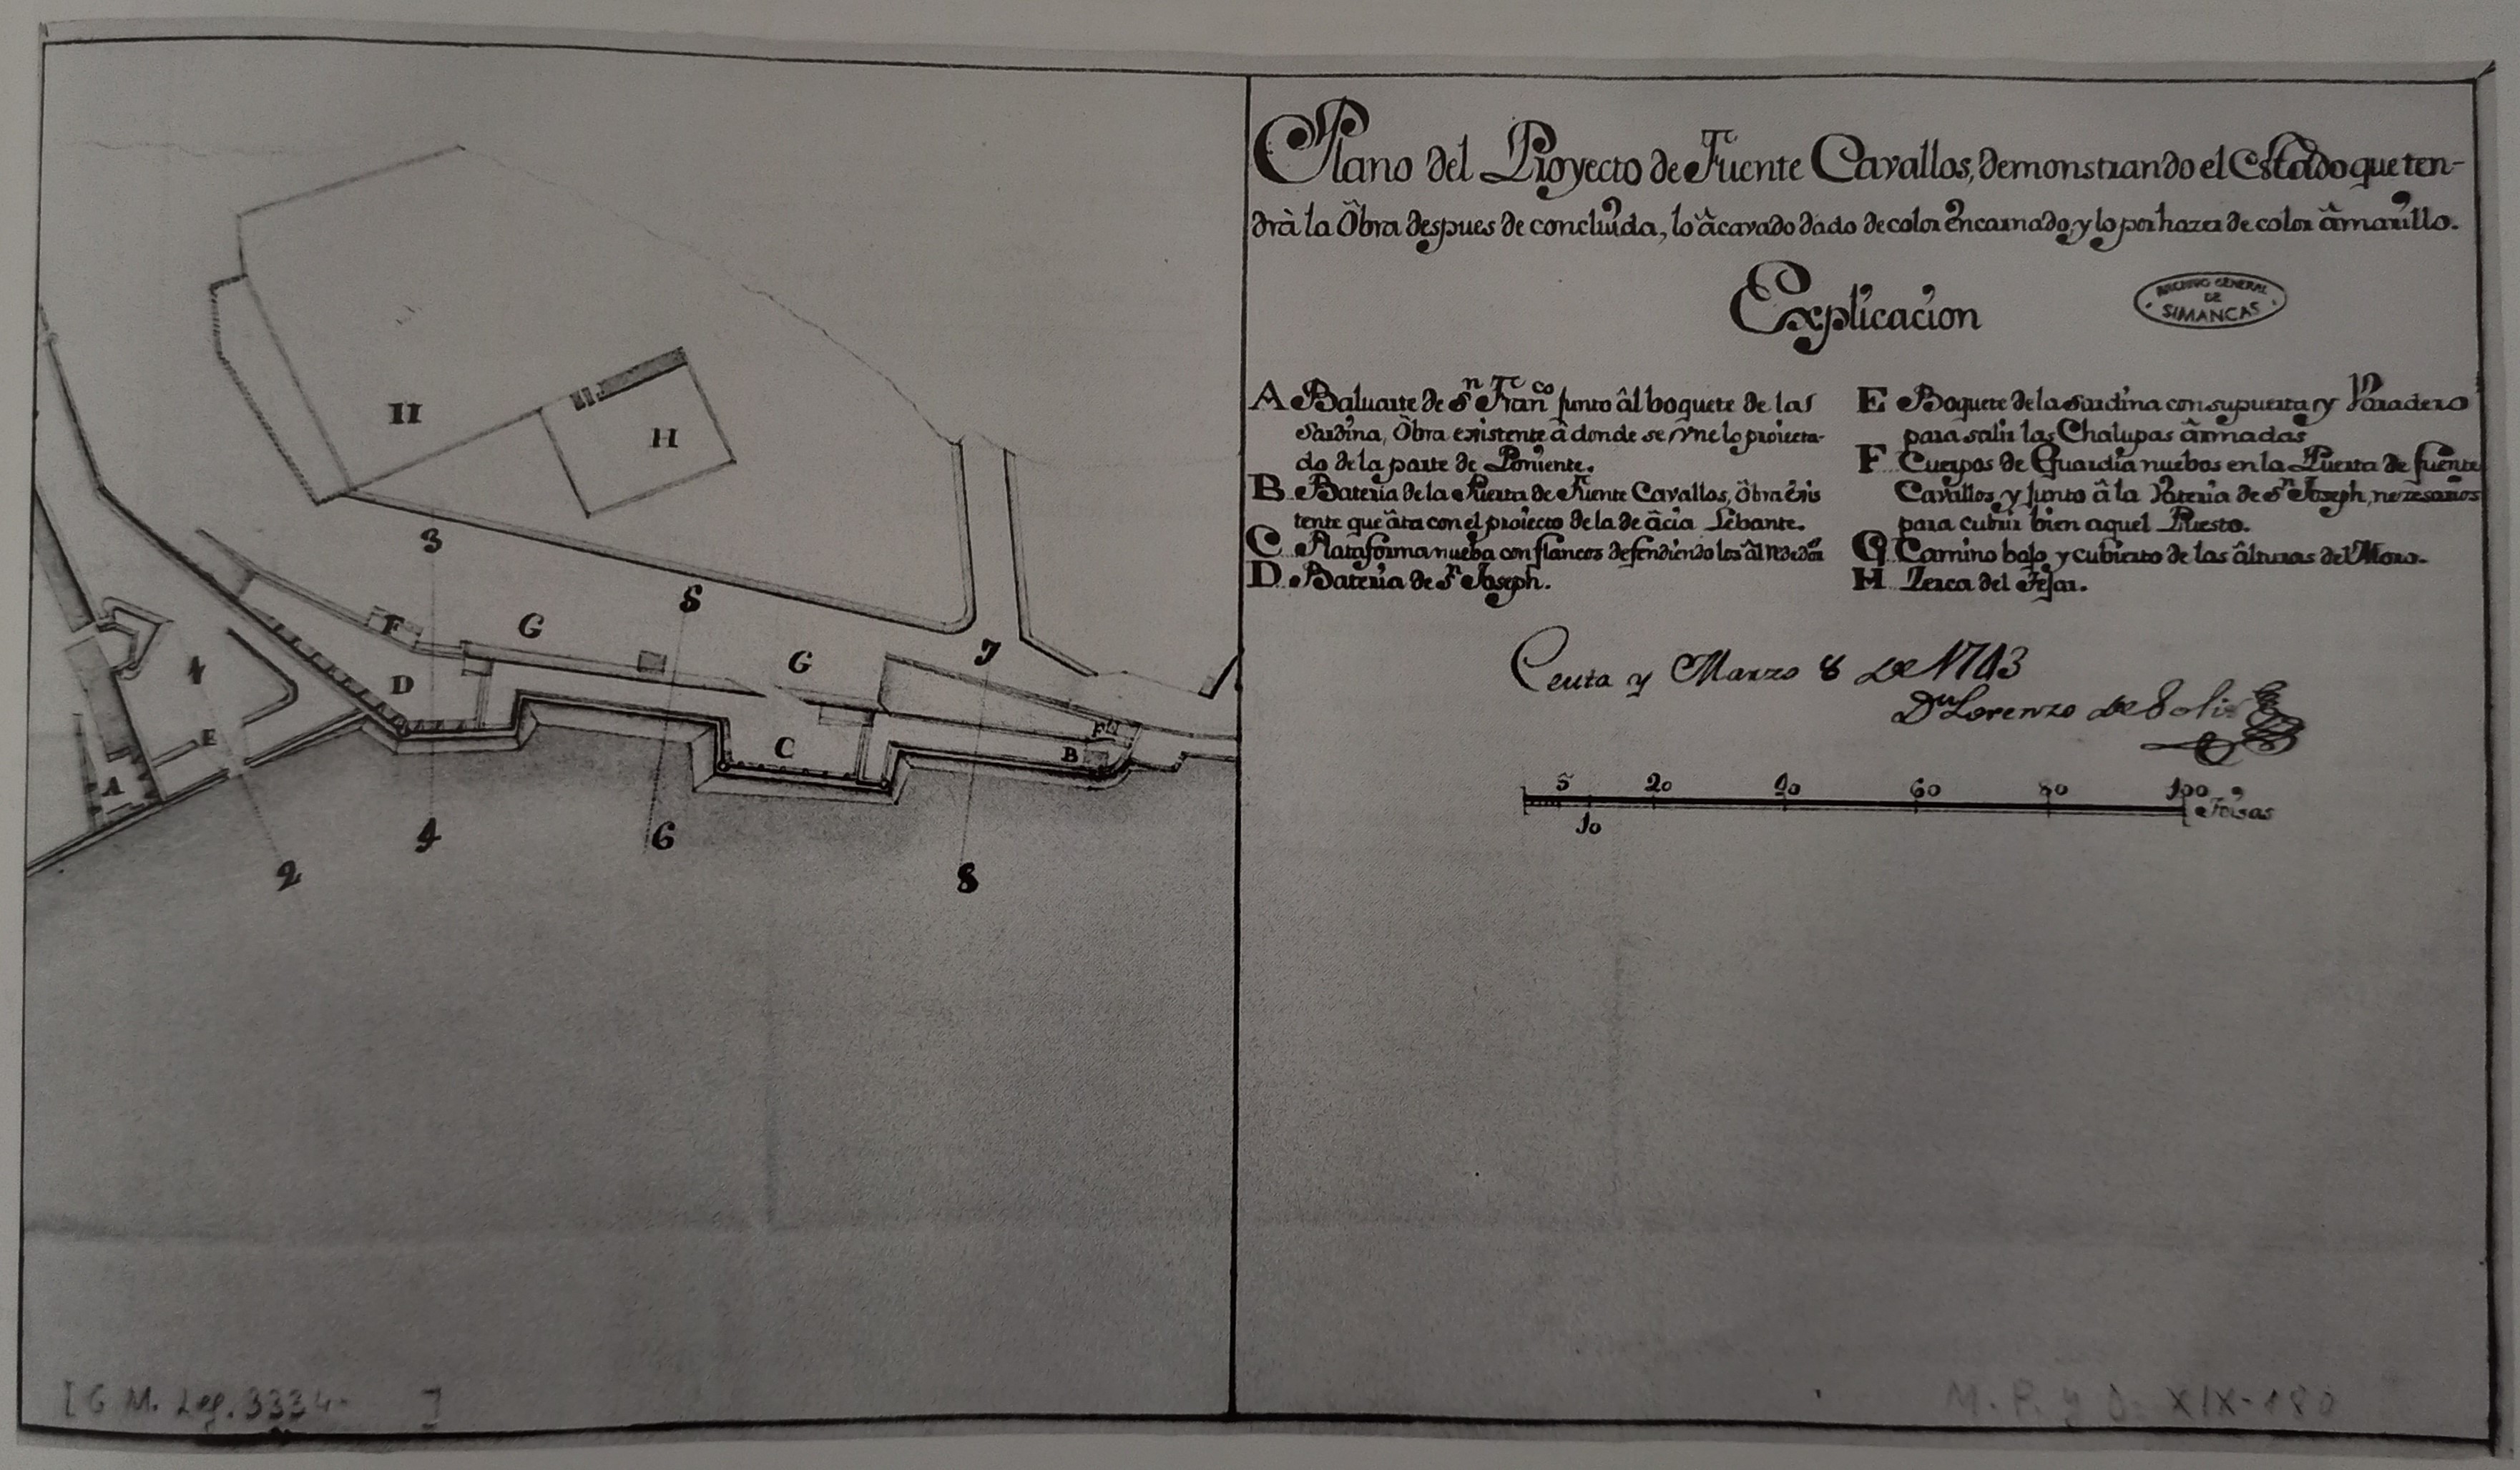 Plano del Proyecto de Fuente Cavallos, demonstrando el Estado que ten-
drà la Obra despues de concluida, lo âcavado dado de color encarnado, y lo por hazer de color âmarillo.
Explicacion
ARCHIVO GENERAL
DE
SIMANCAS
A Baluarte de Sn Franco junto âl boquete de las
Sardina, Obra existente â donde se vne lo proiecta-
do de la parte de Poniente.
B Bateria de la Puerta de Fuente Cavallos, Obra êxis
tente que âta con el proiecto de la de âcia Lebante.
C Plataforma nueba con flancos defendiendo los
D Bateria de Sn Joseph.
E Boquete de la Sardina con su puerta y Varadero
para salir las Chalupas ârmadas
F Cuerpos de Guardia nuebos en la Puerta de fuente
Cavallos, y junto â la Vateria de Sn Joseph, nezesarios
para cubrir bien aquel Puesto.
G Camino bajo y cubierto de las âlturas del Moro.
H Zerca del Tejar.
Ceuta y Marzo 8 de 1743
Dn Lorenzo de Solis
5 20 40 60 80 100
10
Toisas
H
H
3
5
F
G
G
7
1
D
E
C
F
B
A
4
6
2
8
[G M. Leg. 3334- ]
M. P. y D. XIX-180